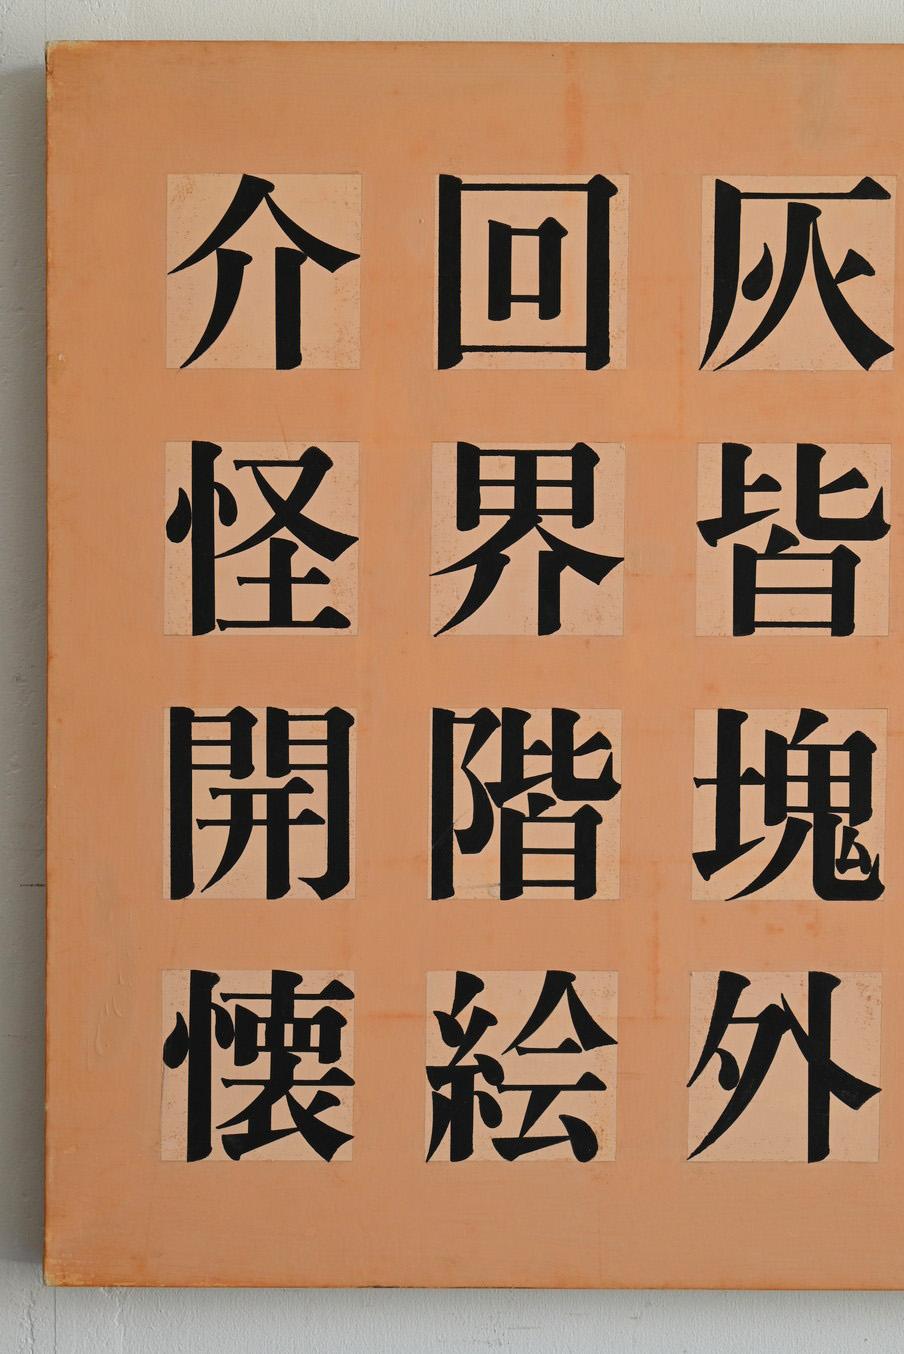 介回灰
怪界皆
開階塊
懐絵外